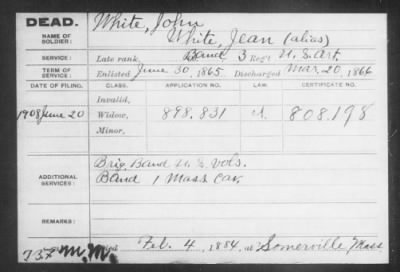 DEAD. White, John
NAME OF SOLDIER: White, Jean (alias)
SERVICE: Late rank, Band 3 Reg't U. S. Art.
TERM OF SERVICE: Enlisted June 30, 1865 Discharged Mar. 20, 1866
DATE OF FILING. CLASS. APPLICATION NO. LAW. CERTIFICATE NO.
Invalid,
1908 June 20 Widow, 898.831 808.198
Minor,
ADDITIONAL SERVICES: Brig Band U. S. Vols.
Band 1 Mass Cav.
REMARKS:
Died Feb. 4, 1884, at Somerville Mass
737 M.M.